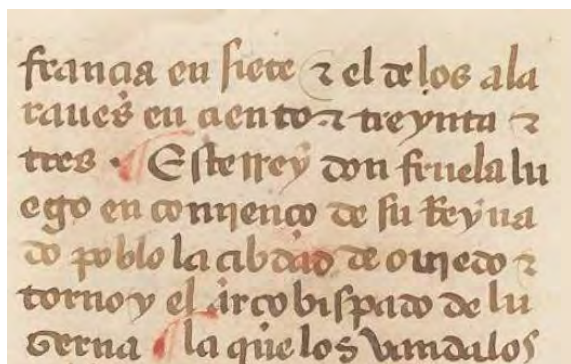 francia en siete ⁊ el de los ala
raues en ciento ⁊ treynta ⁊
tres · ¶ Este rrey don fruela lu
ego en comienço de su Reyna
do poblo la cibdad de ouiedo ⁊
torno y el arçobispado de lu
Gerna ¶ la que los vandalos